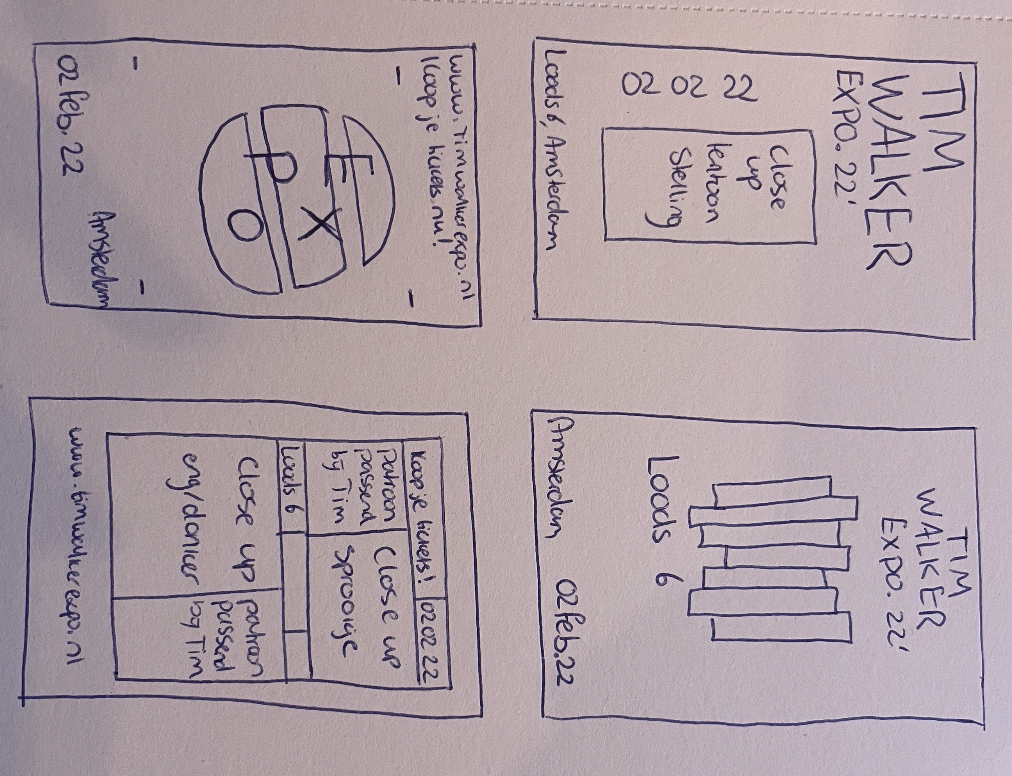 TIM
WALKER
EXPO. 22'
02 02 22
Close
up
tentoon
Stelling
Loods 6, Amsterdam
TIM
WALKER
EXPO. 22'
Loods 6
Amsterdam 02 feb.22
www.timwalkerexpo.nl
Koop je tickets nu!
E X
P O
Amsterdam
02 feb. 22
Koop je tickets! 02 02 22
Patroon
passend
by Tim
Close up
Sprookje
Loods 6
Close up
eng/donker
patroon
passend
by Tim
www.timwalkerexpo.nl